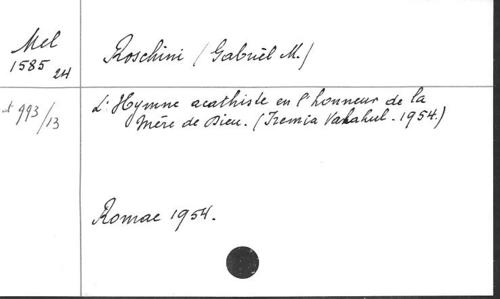 Mel
1585 24
Roschini (Gabriël M.)
993/13
L'Hymne acathiste en l'honneur de la
Mère de Dieu. (Iremia Vakahul. 1954.)
Romae 1954.